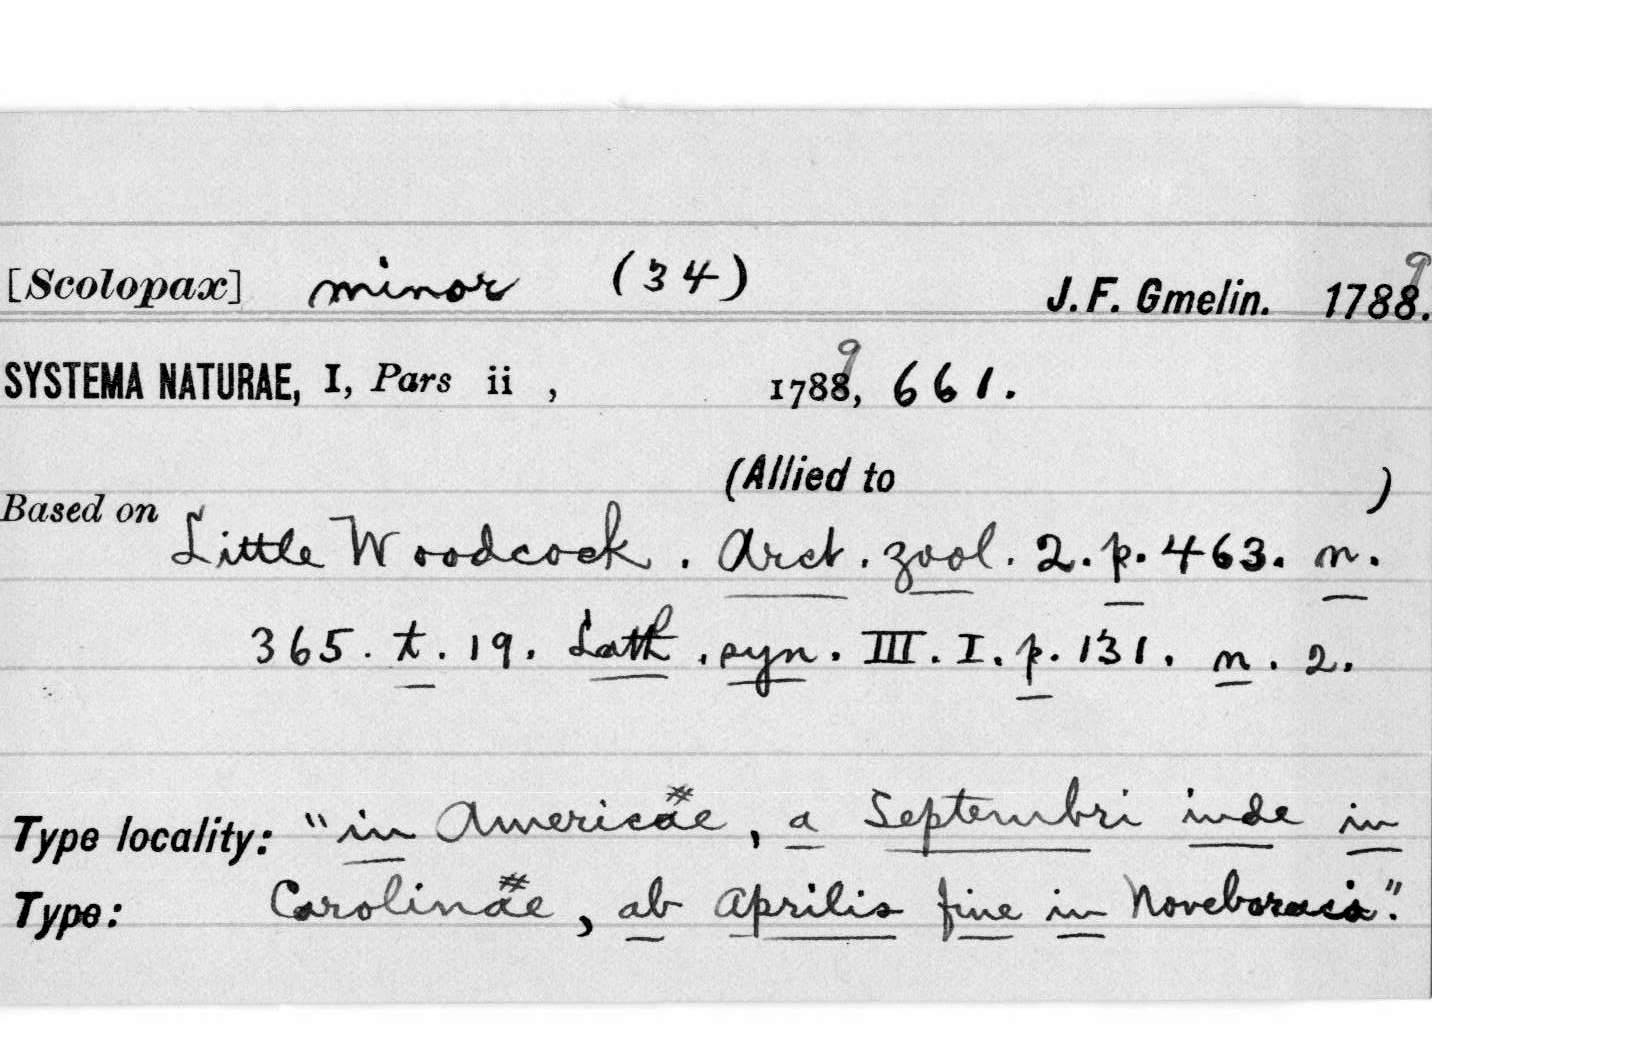 [Scolopax] minor (34) J. F. Gmelin. 1788 9.
SYSTEMA NATURAE, I, Pars ii , 1788 9, 661.
(Allied to )
Based on Little Woodcock . Arct . zool . 2 . p. 463. n.
365 . t . 19 . Lath . syn . III . I . p . 131 . n . 2 .
Type locality: "in Americæ #, a Septembri inde in
Type: Carolinæ #, ab Aprilis fine in